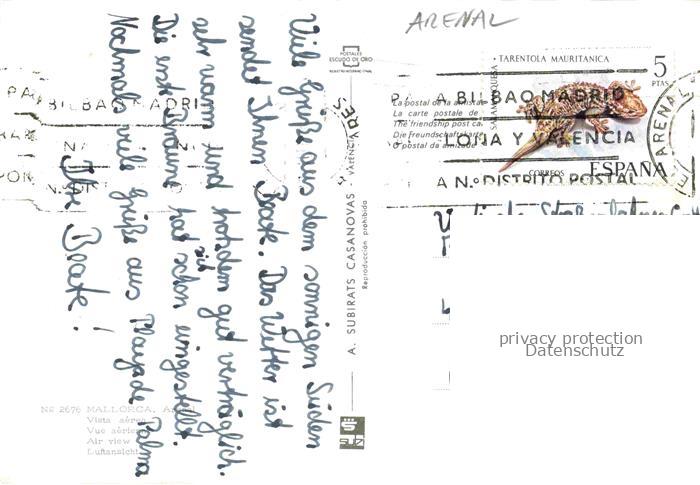 ARENAL
POSTALES
ESCUDO DE ORO
TARENTOLA MAURITANICA
5
PTAS
SALAMANQUESA
CORREOS
ESPAÑA
BILBAO MADRID
VALENCIA
DISTRITO POSTAL
ARENAL
La postal de la amistad
La carte postale de
The friendship post ca
Die Freundschaftskarte
O postal da amizade
Viele Grüße aus dem sonnigen Süden
sendet Ihnen Beate. Das Wetter ist
sehr warm und trotzdem gut verträglich.
Die erste Bräune hat sich schon eingestellt.
Nochmals viele Grüße aus Playa de Palma
Ihre Beate!
A. SUBIRATS CASANOVAS - VALENCIA
Reproducción prohibida
Nº 2676 MALLORCA.
Vista aérea
Vue aérienne
Air view
Luftansicht
privacy protection
Datenschutz